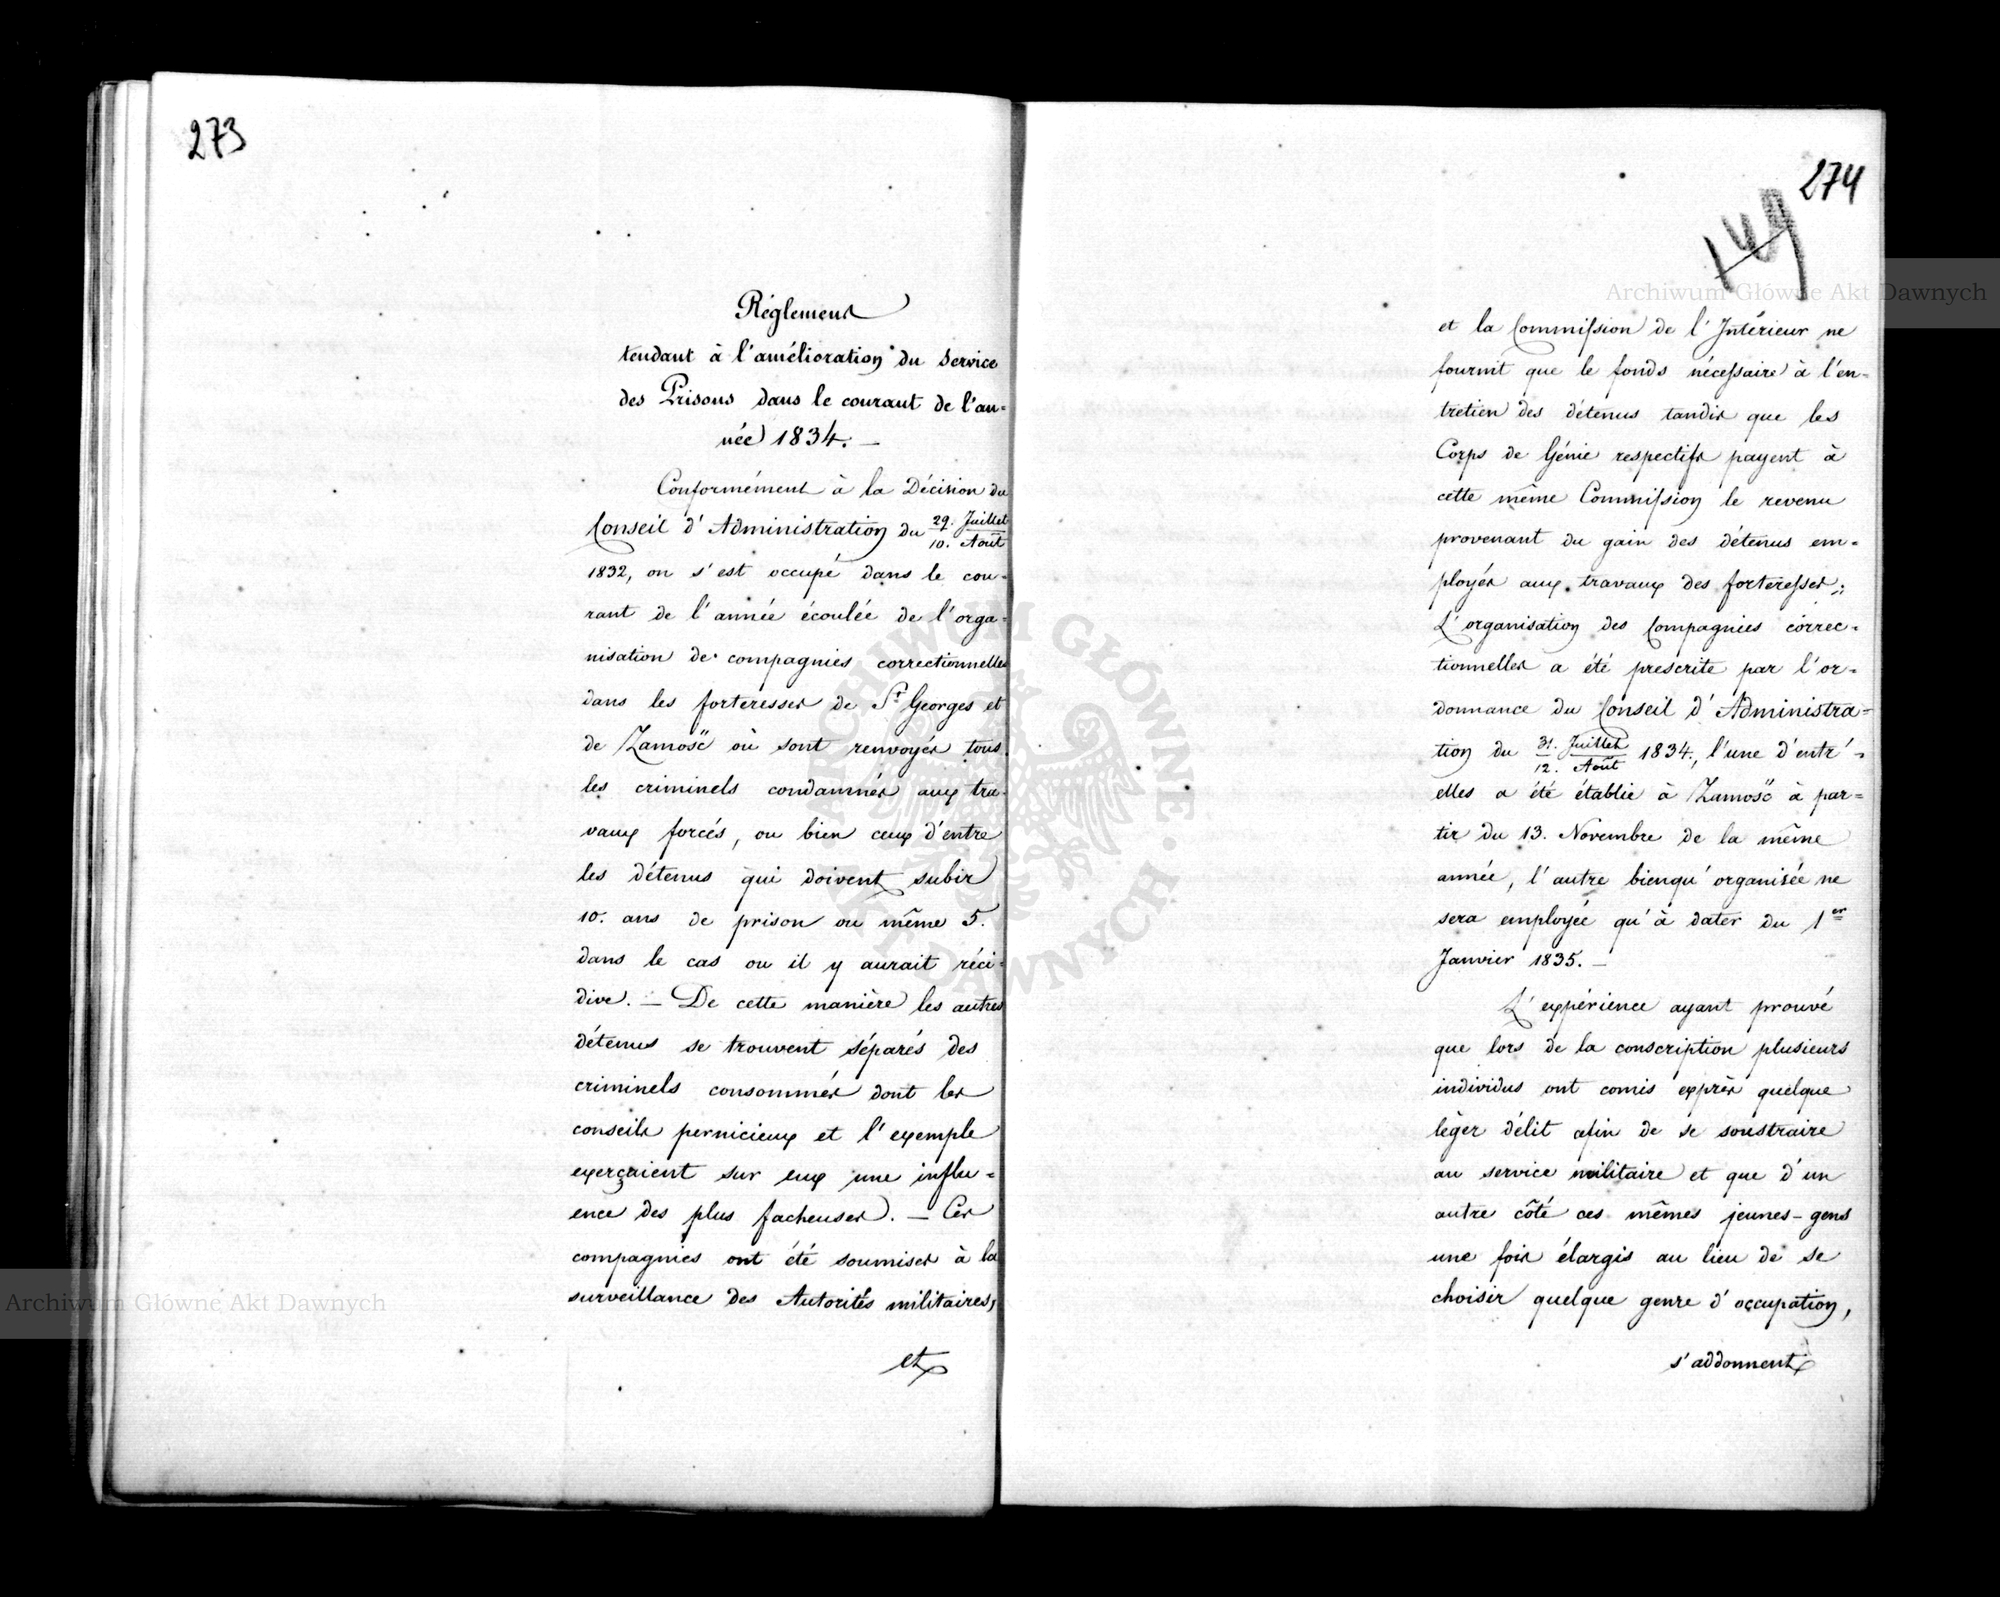 273
Réglement
tendant à l'amélioration du Service
des Prisons dans le courant de l'an=
née 1834. —
Conformément à la Décision du
Conseil d'Administration du 29. Juillet / 10. Août
1832, on s'est occupé dans le cou=
rant de l'année écoulée de l'orga=
nisation de compagnies correctionnelles
dans les forteresses de St Georges et
de Zamosč où sont renvoyés tous
les criminels condamnés aux tra=
vaux forcés, ou bien ceux d'entre
les détenus qui doivent subir
10. ans de prison ou même 5.
dans le cas ou il y aurait réci=
dive. — De cette manière les autres
détenus se trouvent séparés des
criminels consommés dont les
conseils pernicieux et l'exemple
exerçaient sur eux une influ=
ence des plus facheuses. — Ces
compagnies ont été soumises à la
surveillance des Autorités militaires,
et
274
149
et la Commission de l'Intérieur ne
fournit que le fonds nécessaire à l'en=
tretien des détenus tandis que les
Corps de Génie respectifs payent à
cette même Commission le revenu
provenant du gain des détenus em=
ployés aux travaux des forteresses;
L'organisation des Compagnies correc=
tionnelles a été prescrite par l'or=
donnance du Conseil d'Administra=
tion du 31. Juillet / 12. Août 1834, l'une d'entr'=
elles a été établie à Zamosč à par=
tir du 13. Novembre de la même
année, l'autre bienqu'organisée ne
sera employée qu'à dater du 1er
Janvier 1835. —
L'expérience ayant prouvé
que lors de la conscription plusieurs
individus ont comis exprès quelque
lèger délit afin de se soustraire
au service militaire et que d'un
autre côté ces mêmes jeunes-gens
une fois élargis au lieu de se
choisir quelque genre d'occupation,
s'addonnent
Archiwum Główne Akt Dawnych
Archiwum Główne Akt Dawnych
ARCHIWUM GŁÓWNE AKT DAWNYCH